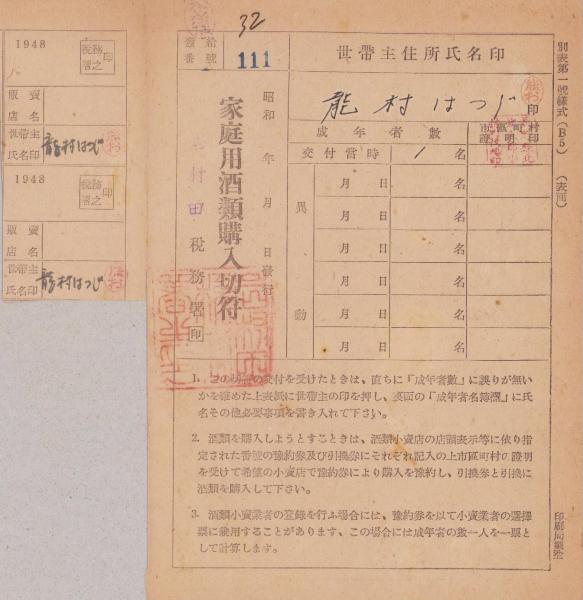 32
番號
111
世帶主住所氏名印
龍村はつじ
印
成年者數
市區町村
證明
交付當時
1名
異動
月 日
名
月 日
名
月 日
名
月 日
名
月 日
名
月 日
名
昭和 年 月 日發行
家庭用酒類購入切符
村田稅務署
印
別表第一號樣式(B5)(表面)
1948
稅務署之印
販賣店名
世帶主氏名印
龍村はつじ
1948
稅務署之印
販賣店名
世帶主氏名印
龍村はつじ
1. この切符の交付を受けたときは、直ちに「成年者數」に誤りが無い
かを確めた上表紙に世帶主の印を押し、裏面の「成年者名簿欄」に氏
名その他必要事項を書き入れて下さい。
2. 酒類を購入しようとすときは、酒類小賣店の店頭表示等に依り指
定された番號の豫約券及び引換券にそれぞれ記入の上市區町村の證明
を受けて希望の小賣店で豫約券により購入を豫約し、引換券と引換に
酒類を購入して下さい。
3. 酒類小賣業者の登錄を行ふ場合には、豫約券を以て小賣業者の選擇
票に兼用することがあります、この場合には成年者の數一人を一票と
して計算します。
印刷局製造